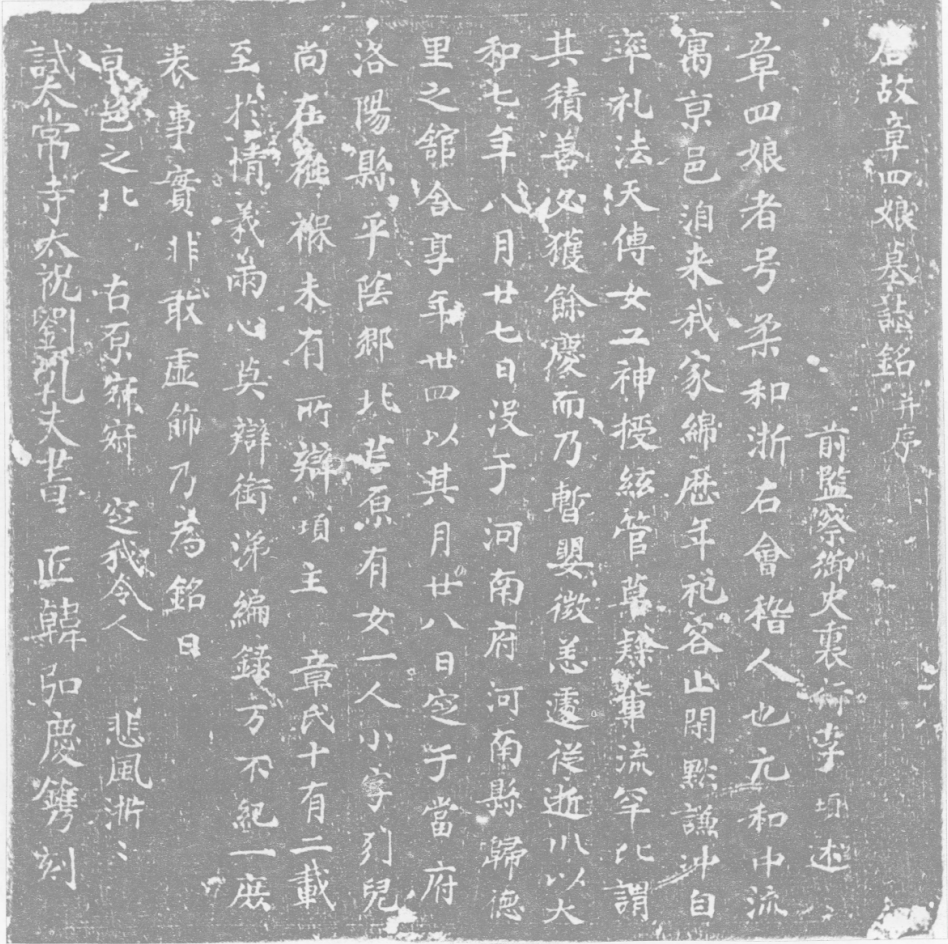 唐故章四娘墓誌銘并序
前監察御史裏行李頊述
章四娘者号柔和浙右會稽人也元和中流
寓京邑洎来我家綿歷年祀容止閑默謙沖自
率礼法天傅女工神授絃管草隸輩流罕比謂
其積善必獲餘慶而乃暫嬰微恙遽從逝川以大
和七年八月廿七日没于河南府河南縣歸德
里之舘舍享年卅四以其月廿八日窆于當府
洛陽縣平陰鄉北芒原有女一人小字列兒
尚在襁褓未有所辯頊主章氏十有二載
至於情義兩心莫辯銜涕編錄万不紀一庶
表事實非敢虛飾乃為銘曰
京邑之北古原寂寂窆我令人悲風淅〻
試太常寺太祝劉礼夫書匠韓弘慶鐫刻